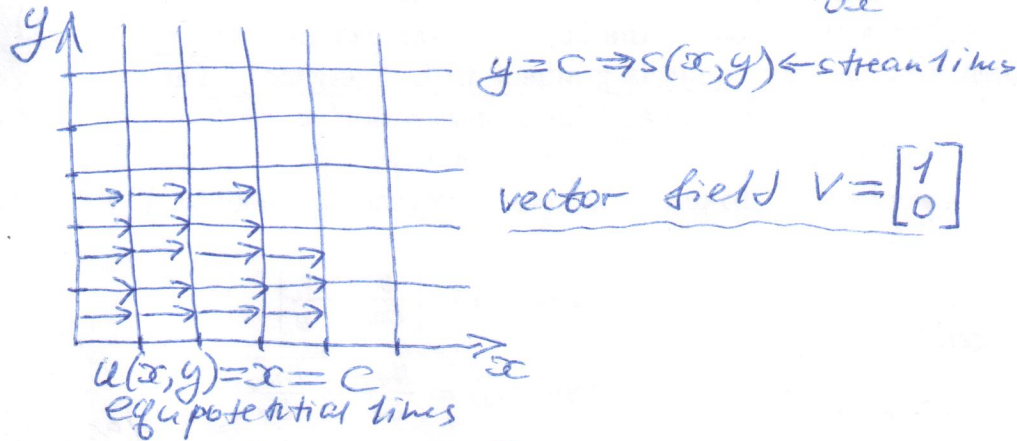 y
∂x
y = C ⇒ s(x,y) ← streanlines
vector field V = [1 0]
x
u(x,y) = x = C
equipotential lines